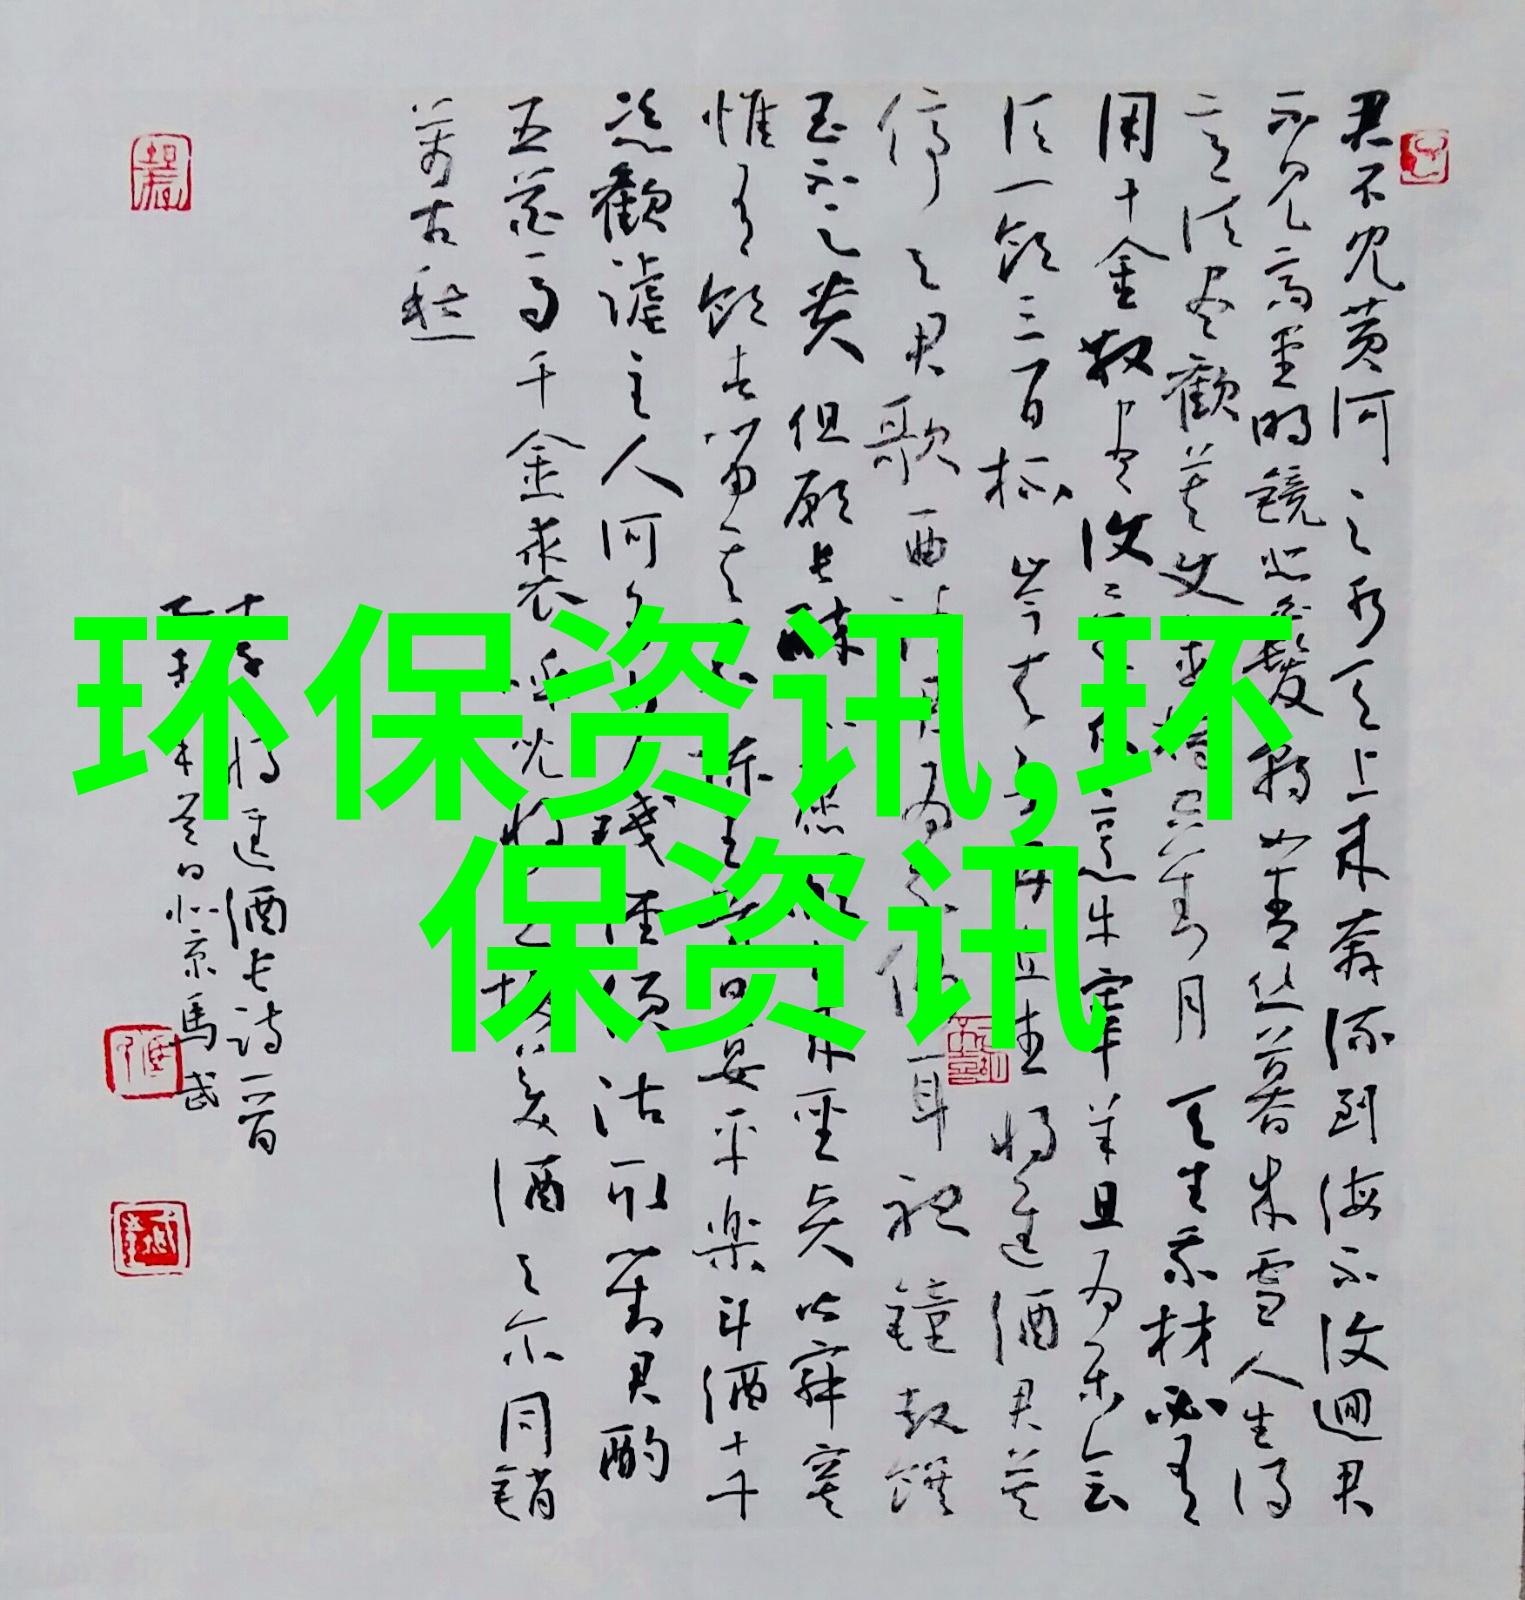 环保资讯,环
保资讯
君不见黄河之水天上来奔流到海不复迴君
不见高堂明镜悲白髮朝如青丝暮成雪人生得
意须尽歡莫使金樽空对月天生我材必有
用千金散尽復还来烹牛宰羊且为乐会
须一饮三百杯岑夫子丹丘生将进酒君莫
停与君歌一曲请君为我倾耳聽鐘鼓馔
玉不足贵但愿长醉不愿醒古来圣贤皆寂寞
惟有饮者留其名陈王昔日宴平楽斗酒十千
恣歡謔主人何为言少钱径须沽取对君酌
五花马千金裘呼儿将出换美酒与尔同销
万古愁
将进酒长诗一首
乙未冬日北京馬武